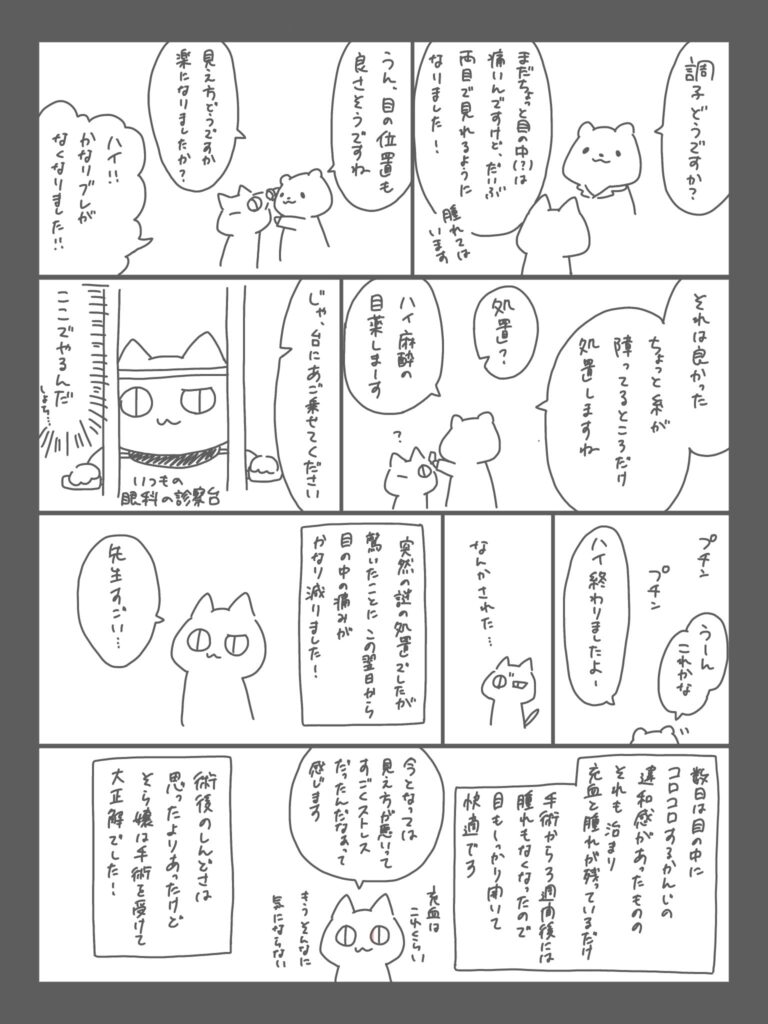 調子どうですか？
まだちょっと目の中(?)は
痛いんですけど、だいぶ
両目で見れるように
なりました！
腫れては
います
うん、目の位置も
良さそうですね
見え方どうですか
楽になりましたか？
ハイ!!
かなりブレが
なくなりました!!
それは良かった
ちょっと糸が
障ってるところだけ
処置しますね
処置？
ハイ麻酔の
目薬しまーす
?
じゃ、台にあご乗せてください
ここでやるんだ
いつもの
眼科の診察台
プチン
プチン
うーん
これかな
ハイ終わりましたよー
なんかされた…
突然の謎の処置でしたが
驚いたことにこの翌日から
目の中の痛みが
かなり減りました！
先生すごい…
数日は目の中に
コロコロするかんじの
違和感があったものの
それも治まり
充血と腫れが残っているだけ
手術から3週間後には
腫れもなくなったので
目もしっかり開いて
快適です
今となっては
見え方が悪いって
すごくストレス
だったんだなぁって
感じます
充血は
これくらい
もうそんなに
気にならない
術後のしんどさは
思ったよりあったけど
そら嬢は手術を受けて
大正解でした！